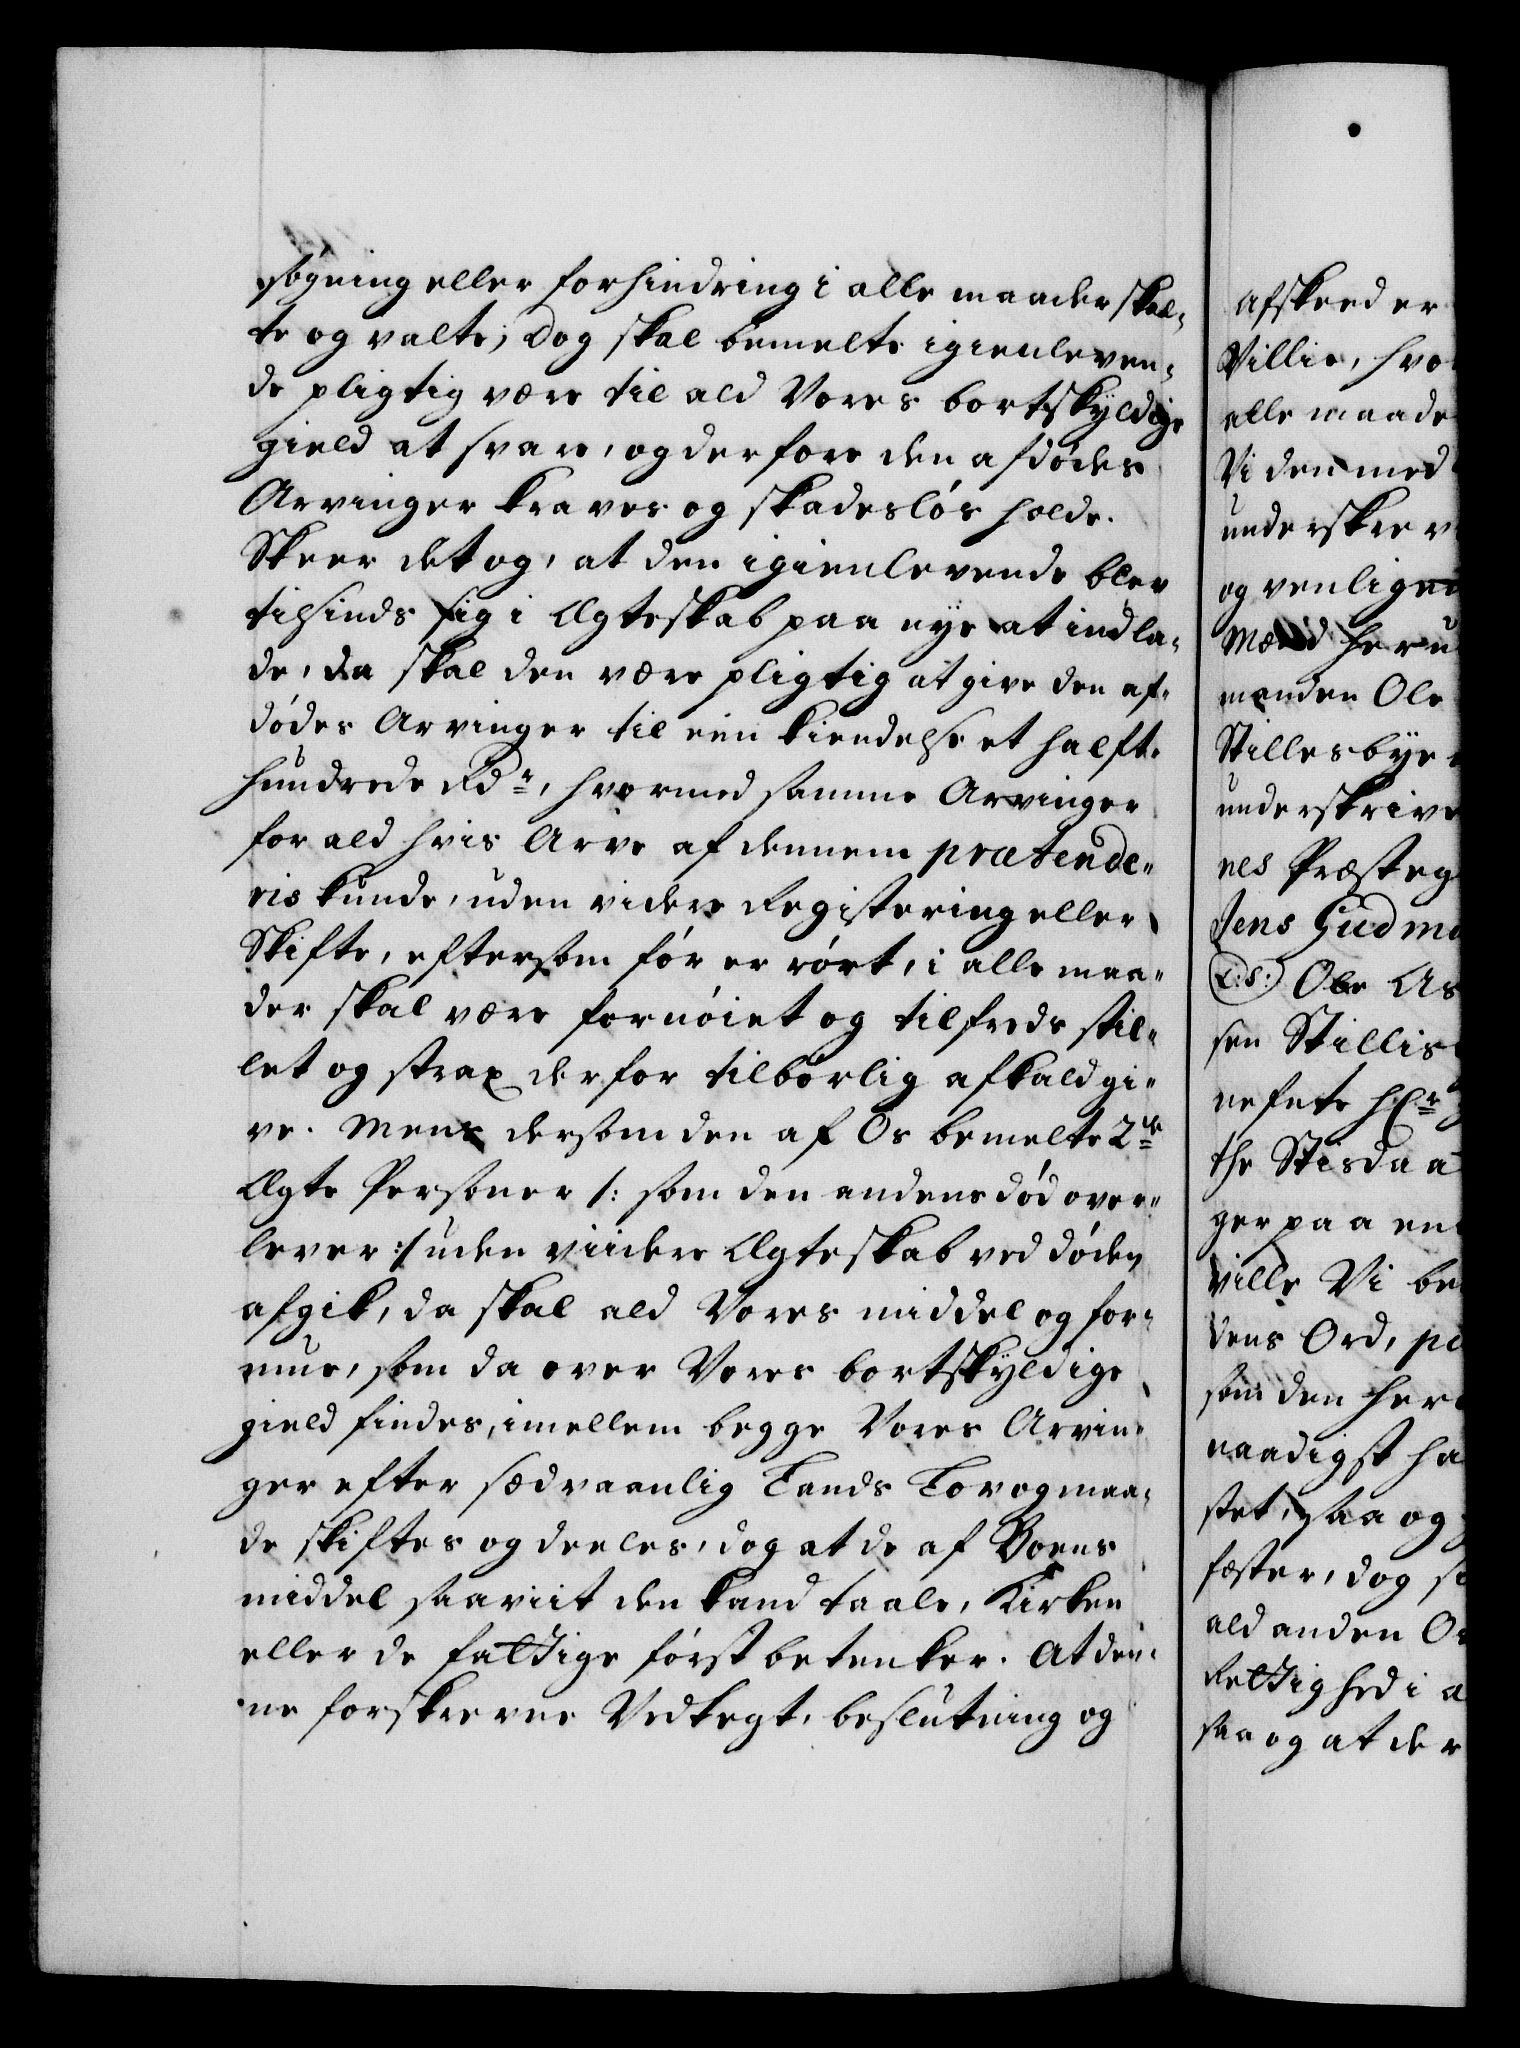 søgning eller forhindring i alle maader skal-
te og valte; Dog skal bemelte igienleven-
de pligtig være til ald Vores bortskyldige
gield at svare, og derfore den afdødes
Arvinger kraves og skadesløs holde.
Skeer det og, at den igienlevende blev
tilsinds sig i Ægteskab paa nye at indla-
de, da skal den være pligtig at give den af-
dødes Arvinger til een kiendelse et halft-
hundrede Rdr, hvormed samme Arvinger
for ald hvis Arve af dennem prætende-
ris kunde, uden videre Registering eller
Skifte, eftersom før er rørt, i alle maa-
der skal være fornøiet og tilfreds stil-
let og strax derfor tilbørlig afkald gi-
ve. Mens dersom den af Os bemelte 2de
Ægte Personer /: som den andens død over-
lever :/ uden viidere Ægteskab ved døden
afgik, da skal ald Vores middel og for-
mue, som da over Vores bortskyldige
gield findes, imellem begge Vores Arvin-
ger efter sædvaanlig Lands Lov og maa-
de skiftes og deeles, dog at de af Boens
middel saaviit den kand taale, Kirken
eller de fattige først betenker. At den-
ne forskrevne Vedtegt, beslutning og
Afskeed er
Villie, hvo
alle maade
Vi den med
underskrev
og venligen
Mænd her u
manden Ole
Stillesbye
underskrive
nes Præsteg
Jens Gudm
(L:S:) Ole As
sen Stillis
nefnte Hr
the Stisdaa
ger paa en
ville Vi be
dens Ord, p
som den her
naadigst ha
stet, saa og
fæster, dog s
ald anden O
Rettighed i a
saa og at der